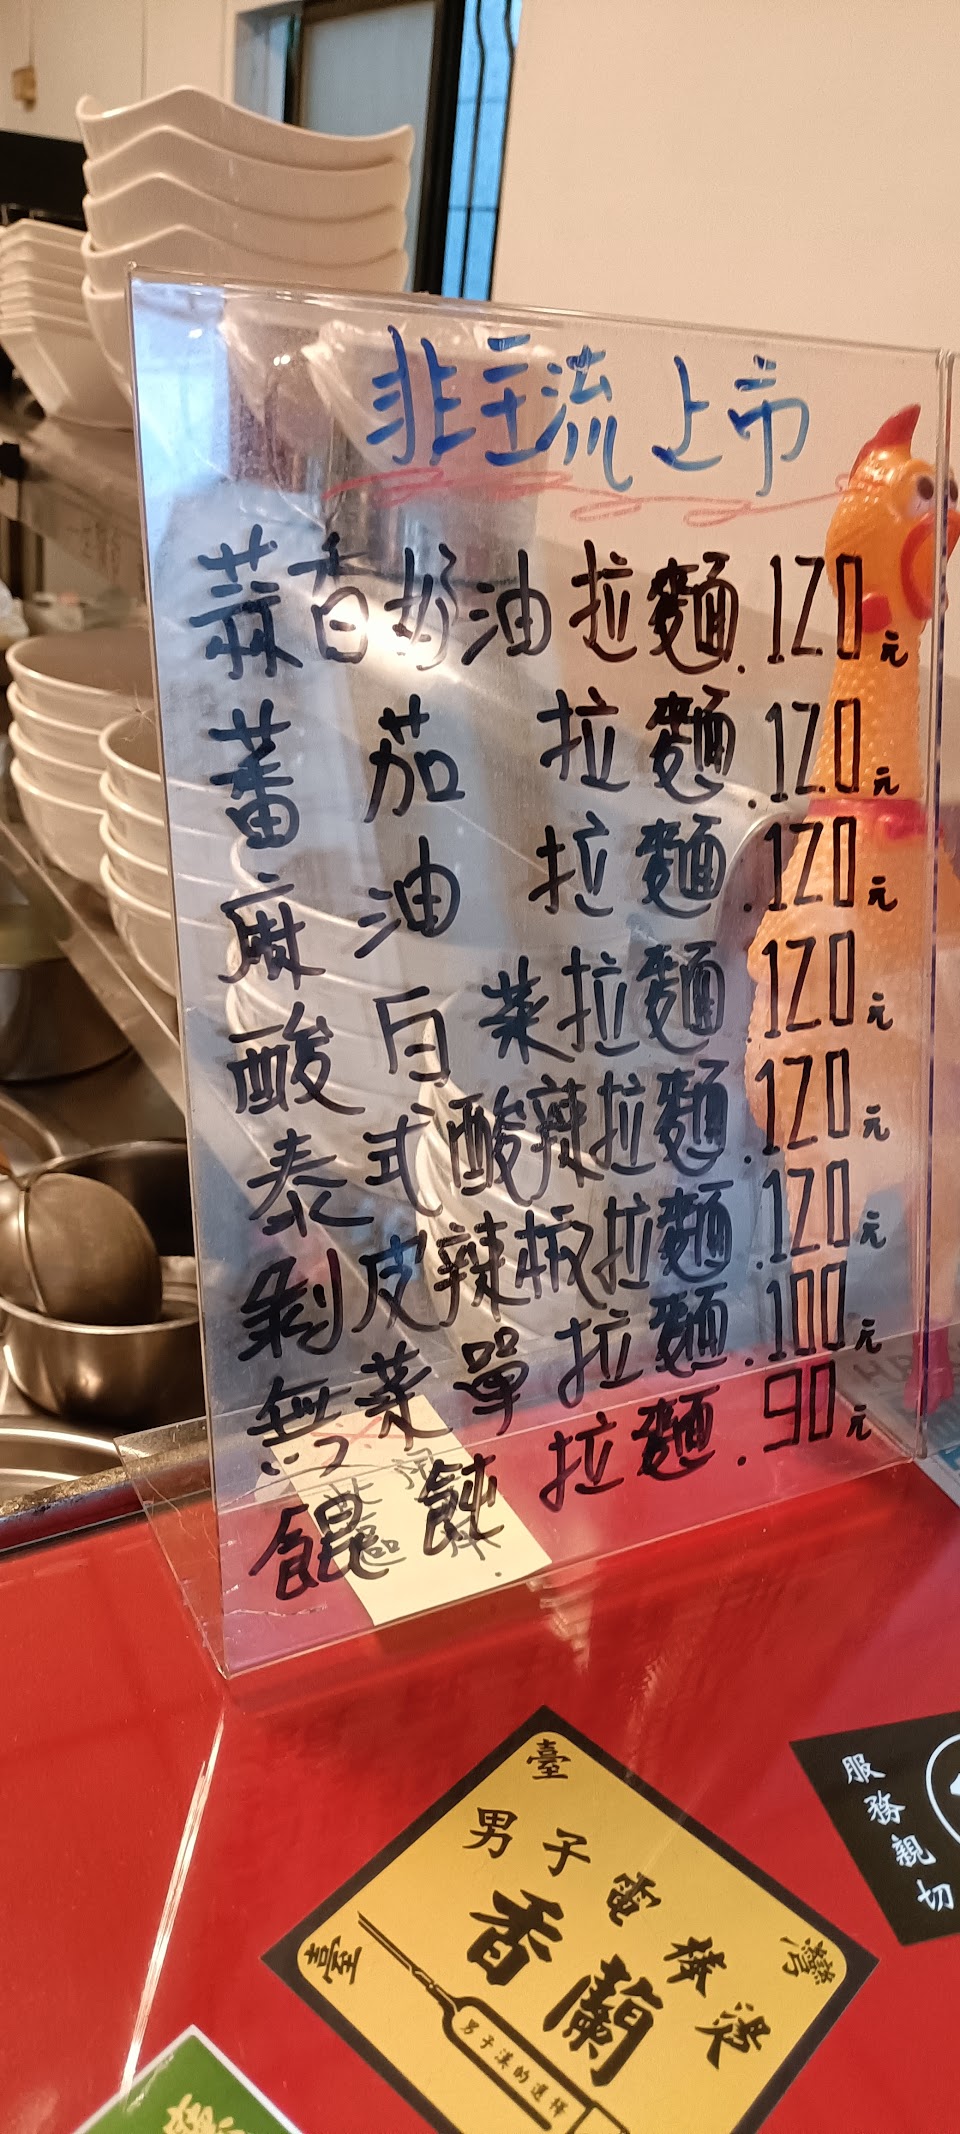 非主流上市
蒜香奶油拉麵.120元
蕃茄拉麵.120元
麻油拉麵.120元
酸白菜拉麵.120元
泰式酸辣拉麵.120元
剝皮辣椒拉麵.120元
無菜單拉麵.100元
餛飩拉麵.90元
臺
男子電棒燙
香蘭
臺
灣
男子漢的選擇
服務親切